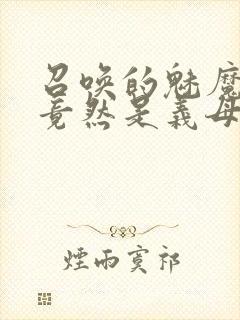 召唤的魅魔
竟然是义母
煙雨寞祁